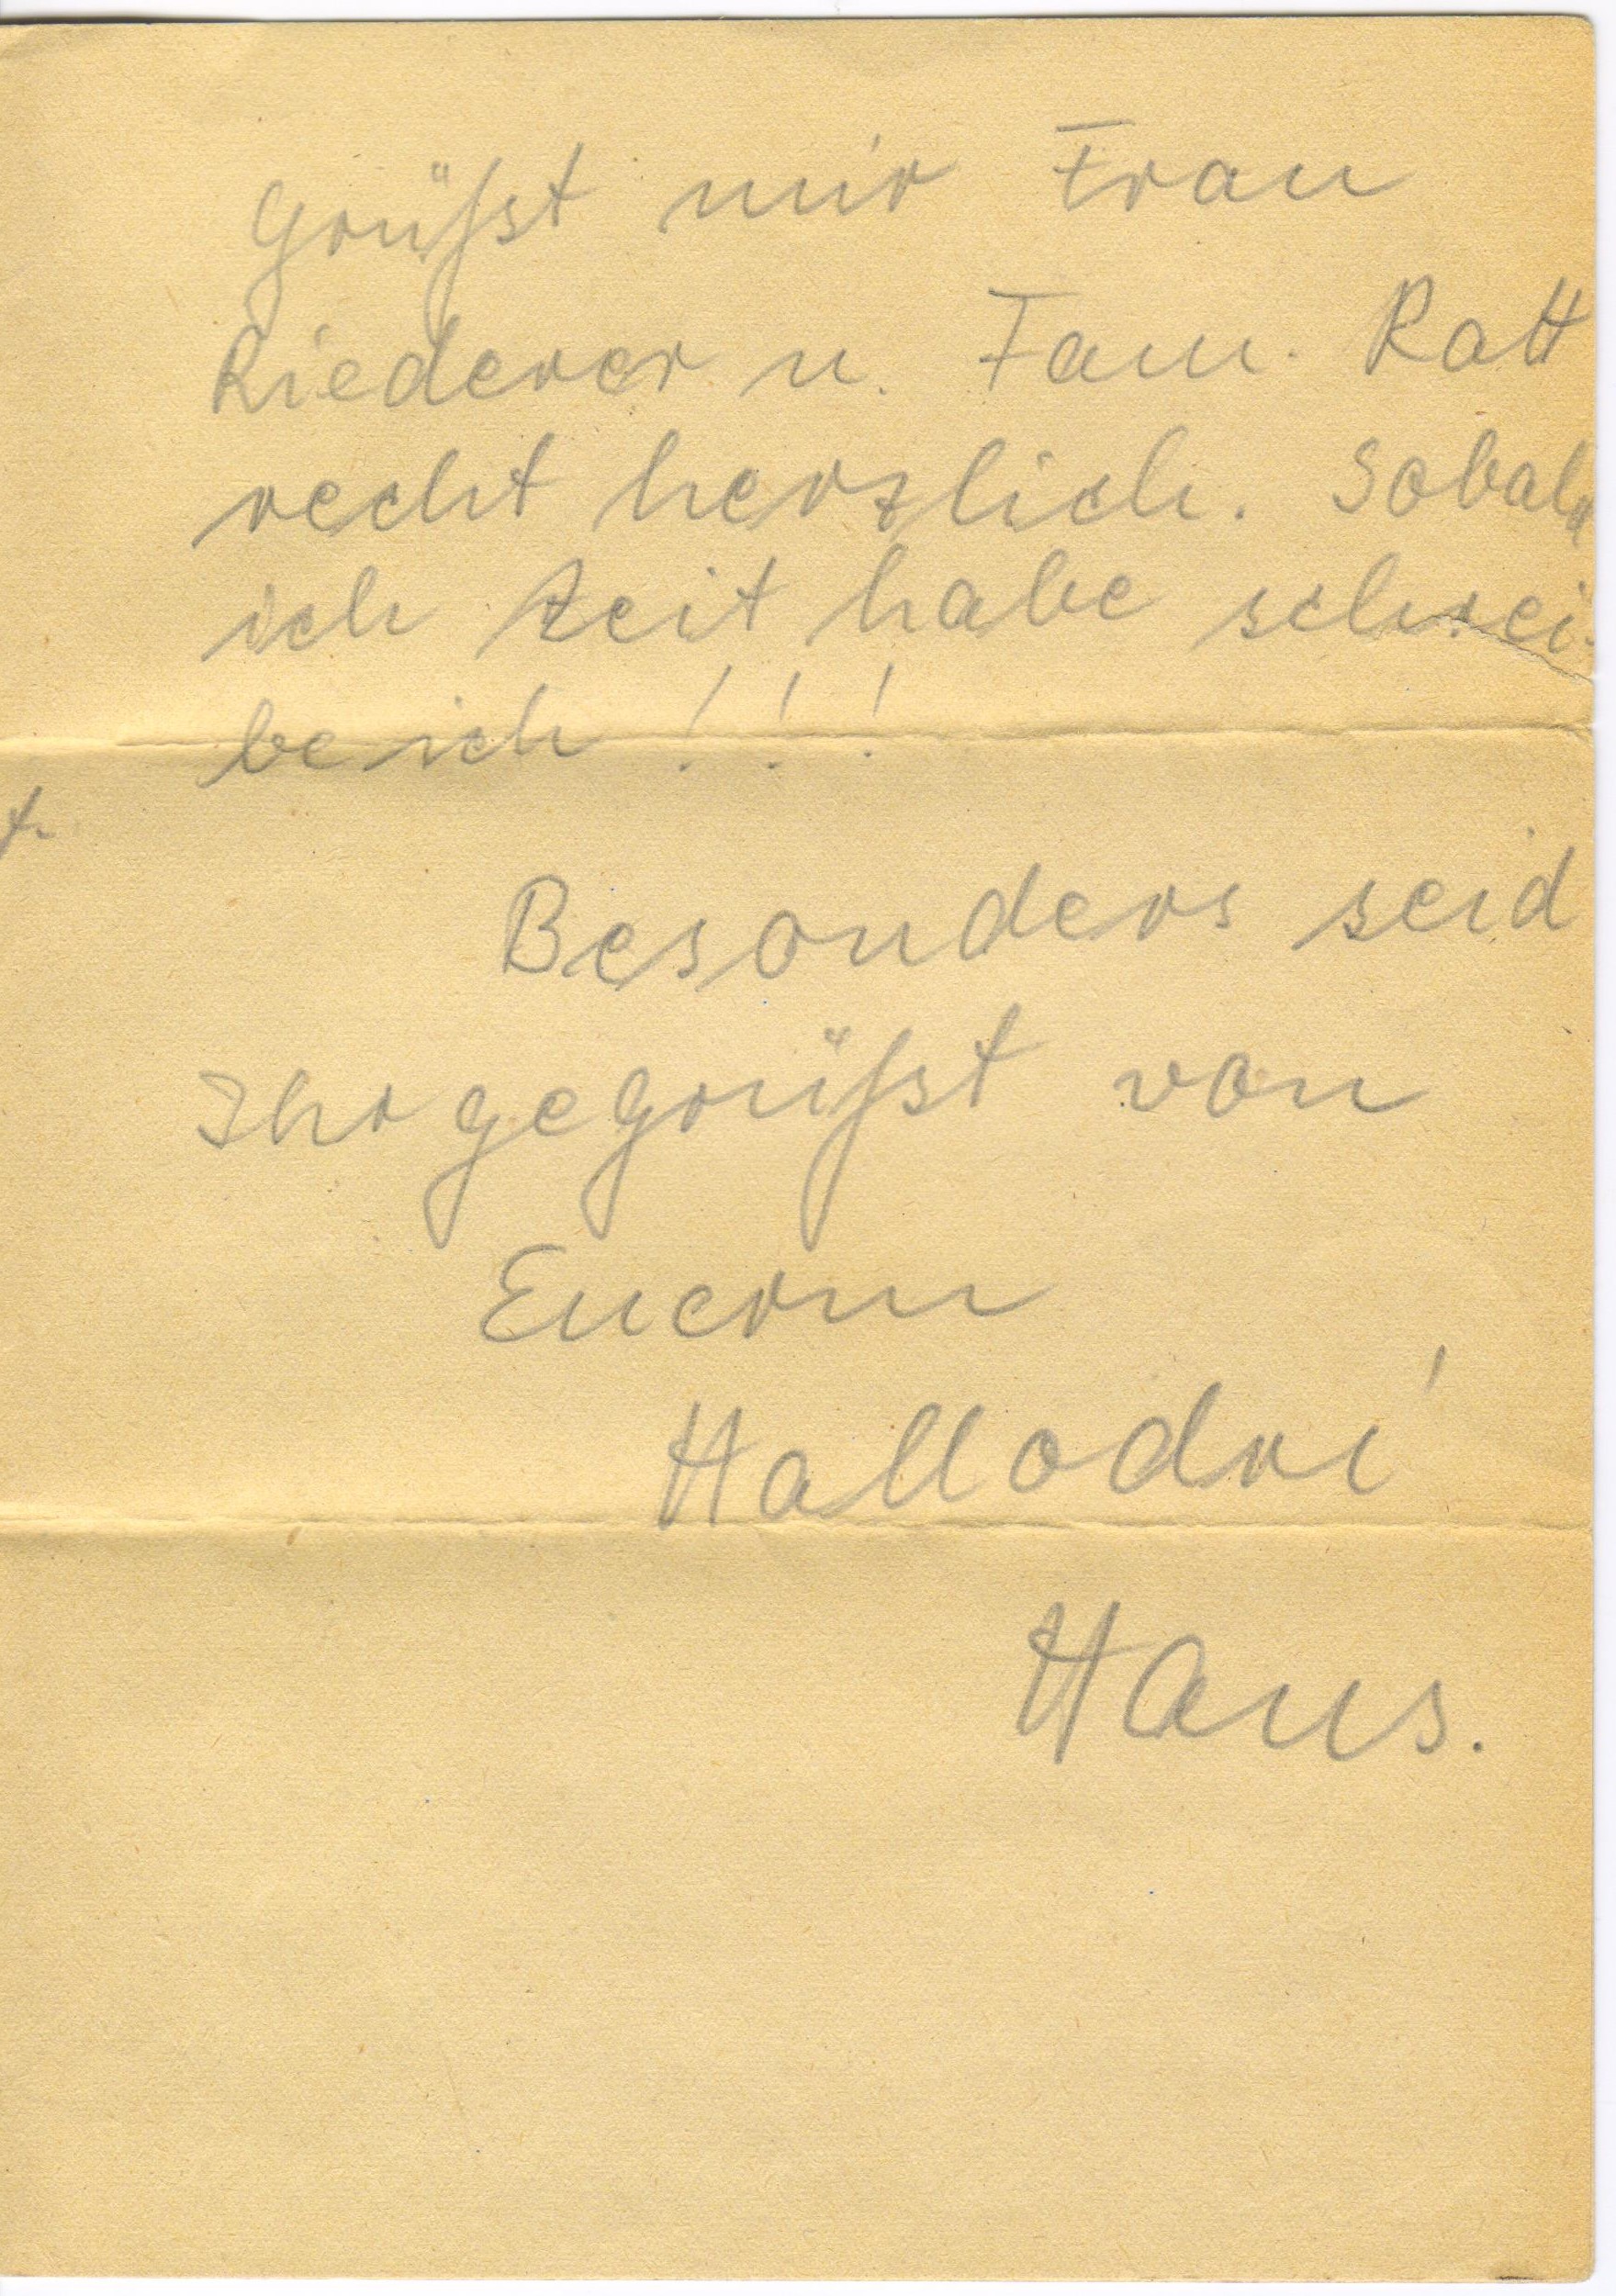 Grüßt mir Frau
Riederer u. Fam. Ratt
recht herzlich. Sobald
ich Zeit habe schrei-
be ich!!!
Besonders seid
Ihr gegrüßt von
Euerm
Hallodri
Hans.